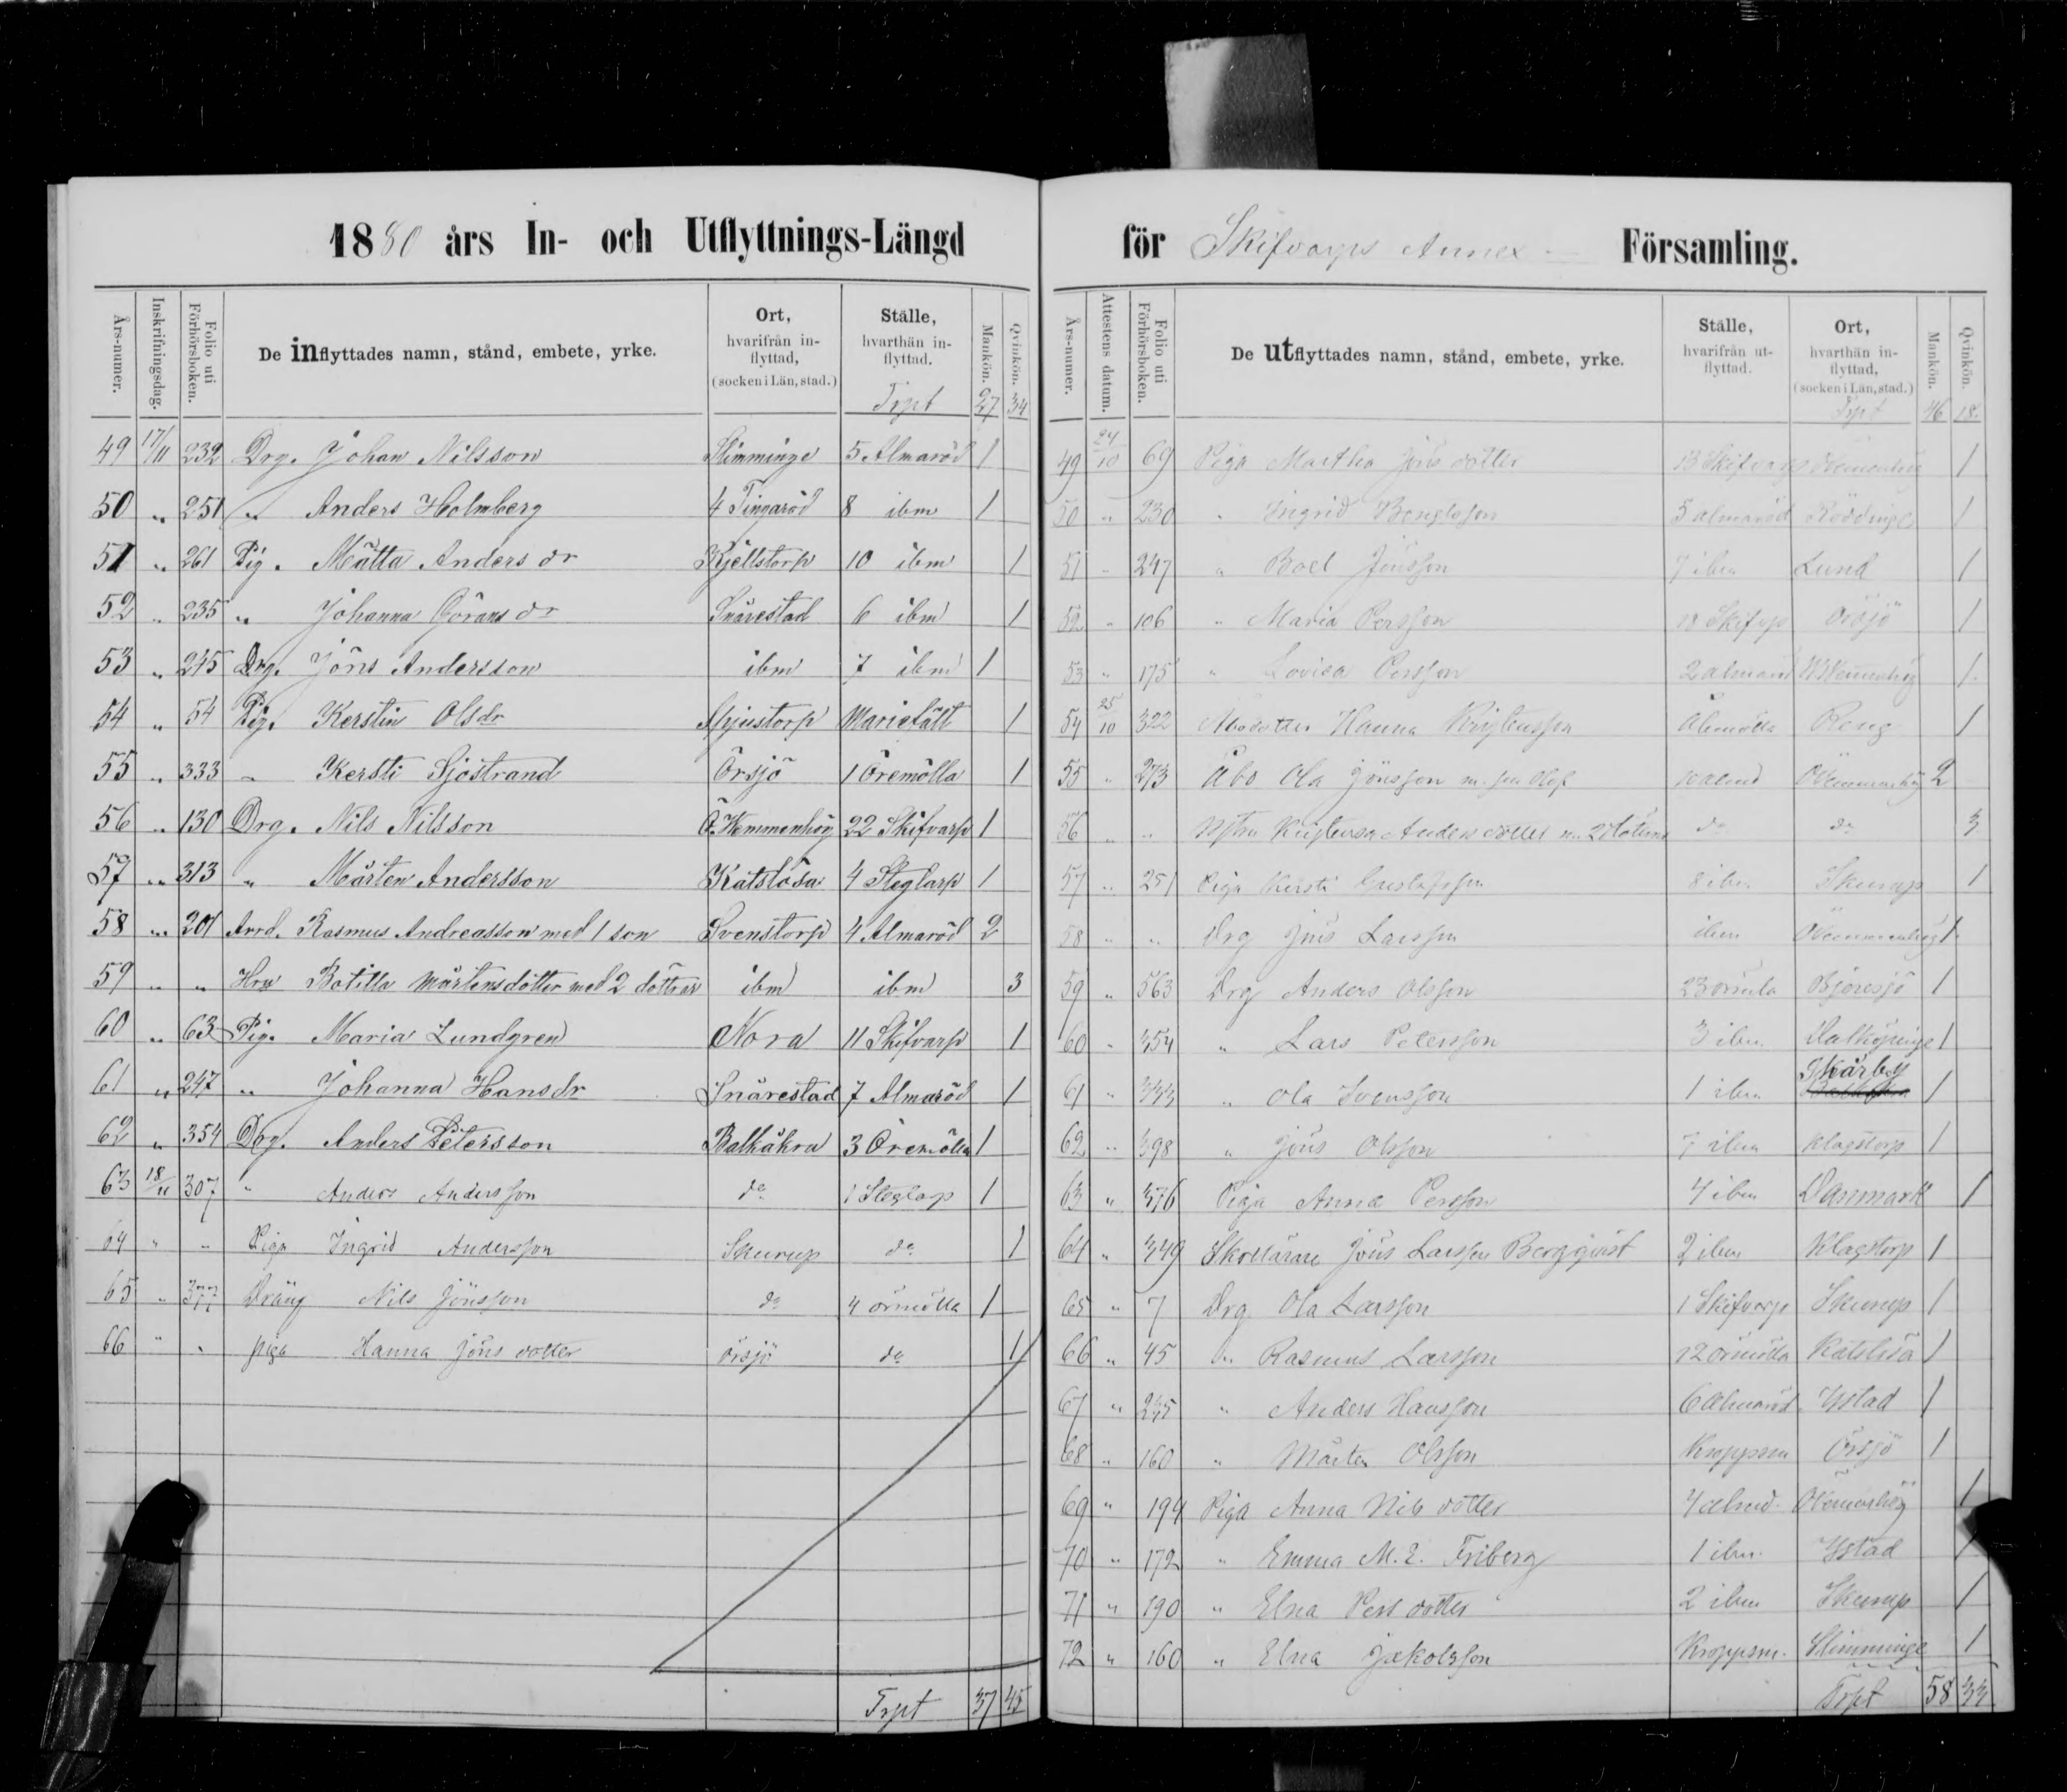 1880 års In- och Utflyttnings-Längd
Års-numer. Inskrifningsdag. Folio uti Förhörsboken. De inflyttades namn, stånd, embete, yrke. Ort, hvarifrån in-flyttad, (socken i Län, stad.) Ställe, hvarthän in-flyttad. Mankön. Qvinkön.
Trpt 27 34
49 17/11 232 Drg. Johan Nilsson Slimminge 5 Almaröd 1
50 " 251 " Anders Holmberg 4 Tingaröd 8 ibm 1
51 " 261 Pig. Mätta Anders dr Kjellstorp 10 ibm 1
52 " 235 " Johanna Görans dr Snårestad 6 ibm 1
53 " 245 Drg. Jöns Andersson ibm 7 ibm 1
54 " 54 Pig. Kerstin Olsdr Mariefält 1
55 " 333 " Kersti Sjöstrand Örsjö 1 Öremölla 1
56 " 130 Drg. Nils Nilsson Ö. Wemmenhög 22 Skifvarp 1
57 " 313 " Mårten Andersson Katslösa 4 Steglarp 1
58 " 201 Arrd. Rasmus Andreasson med 1 son Svenstorp 4 Almaröd 2
59 " " Hru Botilla Mårtensdotter med 2 döttrar ibm ibm 3
60 " 63 Pig. Maria Lundgren Nora 11 Skifvarp 1
61 " 247 " Johanna Hansdr Snårestad 7 Almaröd 1
62 " 354 Drg. Anders Petersson Balkåkra 3 Öremölla 1
63 18/11 307 " Anders Andersson do 1 Steglap 1
64 " " Piga Ingrid Andersson Skurup do 1
65 " 377 Dräng Nils Jönsson do 4 örmölla 1
66 " " piga Hanna Jöns dotter örsjö do 1
Trpt 37 45
för Skifvarps Annex - Församling.
Års-numer. Attestens datum. Folio uti Förhörsboken. De utflyttades namn, stånd, embete, yrke. Ställe, hvarifrån ut-flyttad. Ort, hvarthän in-flyttad, (socken i Län, stad.) Mankön. Qvinkön.
Trpt 46 18
49 24/10 69 Piga Martha Jöns dotter 13 Skifvarp 1
50 " 230 " Ingrid Bengtsson 5 almaröd Röddinge 1
51 " 247 " Boel Jönsson 7 ibm Lund 1
52 " 106 " Maria Persson 18 Skifvp Örsjö 1
53 " 175 " Lovisa Persson 2 almaröd 1
54 25/10 322 Hanna Kristensson Reng 1
55 " 273 Åbo Ola Jönsson m. son Olof 10 almd Ö Wemmenhög 2
56 " " Hstru Anders dotter m. 2 do do 3
57 " 251 Piga Kersti Gustafsson 8 ibm Skurup 1
58 " " Drg Jöns Larsson ibm Ö Wemmenhög 1
59 " 363 Drg Anders Olsson 23 Bjeresjö 1
60 " 354 " Lars Petersson 3 ibm Dalköpinge 1
61 " 333 " Ola Svensson 1 ibm Skårby 1
62 " 398 " Jöns Olsson 7 ibm Klagstorp 1
63 " 376 Piga Anna Persson 4 ibm Danmark 1
64 " 349 Skollärare Jöns Larsson Bergqvist 2 ibm Klagstorp 1
65 " 7 Drg Ola Larsson 1 Skifvarp Skurup 1
66 " 45 " Rasmus Larsson 12 örmölla Katslösa 1
67 " 245 " Anders Hansson 6 Almaröd Ystad 1
68 " 160 " Mårten Olsson Örsjö 1
69 " 194 Piga Anna Nils dotter 4 almd. 1
70 " 172 " Emma M. E. Friberg 1 ibm Ystad 1
71 " 190 " Elna Pers dotter 2 ibm Skurup 1
72 " 160 " Elna Jakobsson Slimminge 1
Trpt 58 33